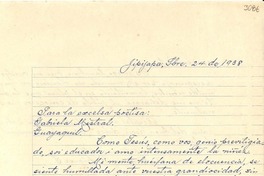 3086
Jipijapa, Sbre. 24 de 1938
Para la excelsa poetisa
Gabriela Mistral.
Guayaquil.
Como Jesús, como vos, genio prestigia
do, soi educador i amo intensamente la niñez
Mi mente, huérfana de elocuencia, se
siente humillada ante vuestra grandiosidad, sin